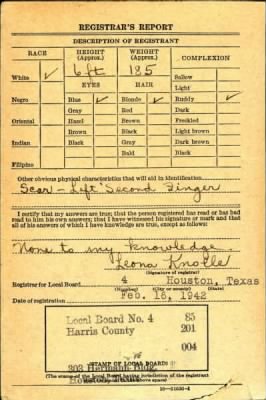 REGISTRAR'S REPORT
DESCRIPTION OF REGISTRANT
RACE
HEIGHT
(Approx.)
WEIGHT
(Approx.)
COMPLEXION
6 ft
185
White ✓
EYES
HAIR
Sallow
Light
Negro
Blue ✓
Blonde ✓
Ruddy ✓
Gray
Red
Dark
Oriental
Hazel
Brown
Freckled
Brown
Black
Light brown
Indian
Black
Gray
Dark brown
Bald
Black
Filipino
Other obvious physical characteristics that will aid in identification
Scar - Left Second Finger
I certify that my answers are true; that the person registered has read or has had
read to him his own answers; that I have witnessed his signature or mark and that
all of his answers of which I have knowledge are true, except as follows:
None to my knowledge.
Leona
(Signature of registrar)
Registrar for Local Board
4
Houston, Texas
(Number)
(City or county)
(State)
Date of registration
Feb. 16, 1942
Local Board No. 4
85
Harris County
201
004
303 Hermann Bldg.
STAMP OF LOCAL BOARD
(The stamp of the Local Board having jurisdiction of the registrant
shall be placed in the above space)